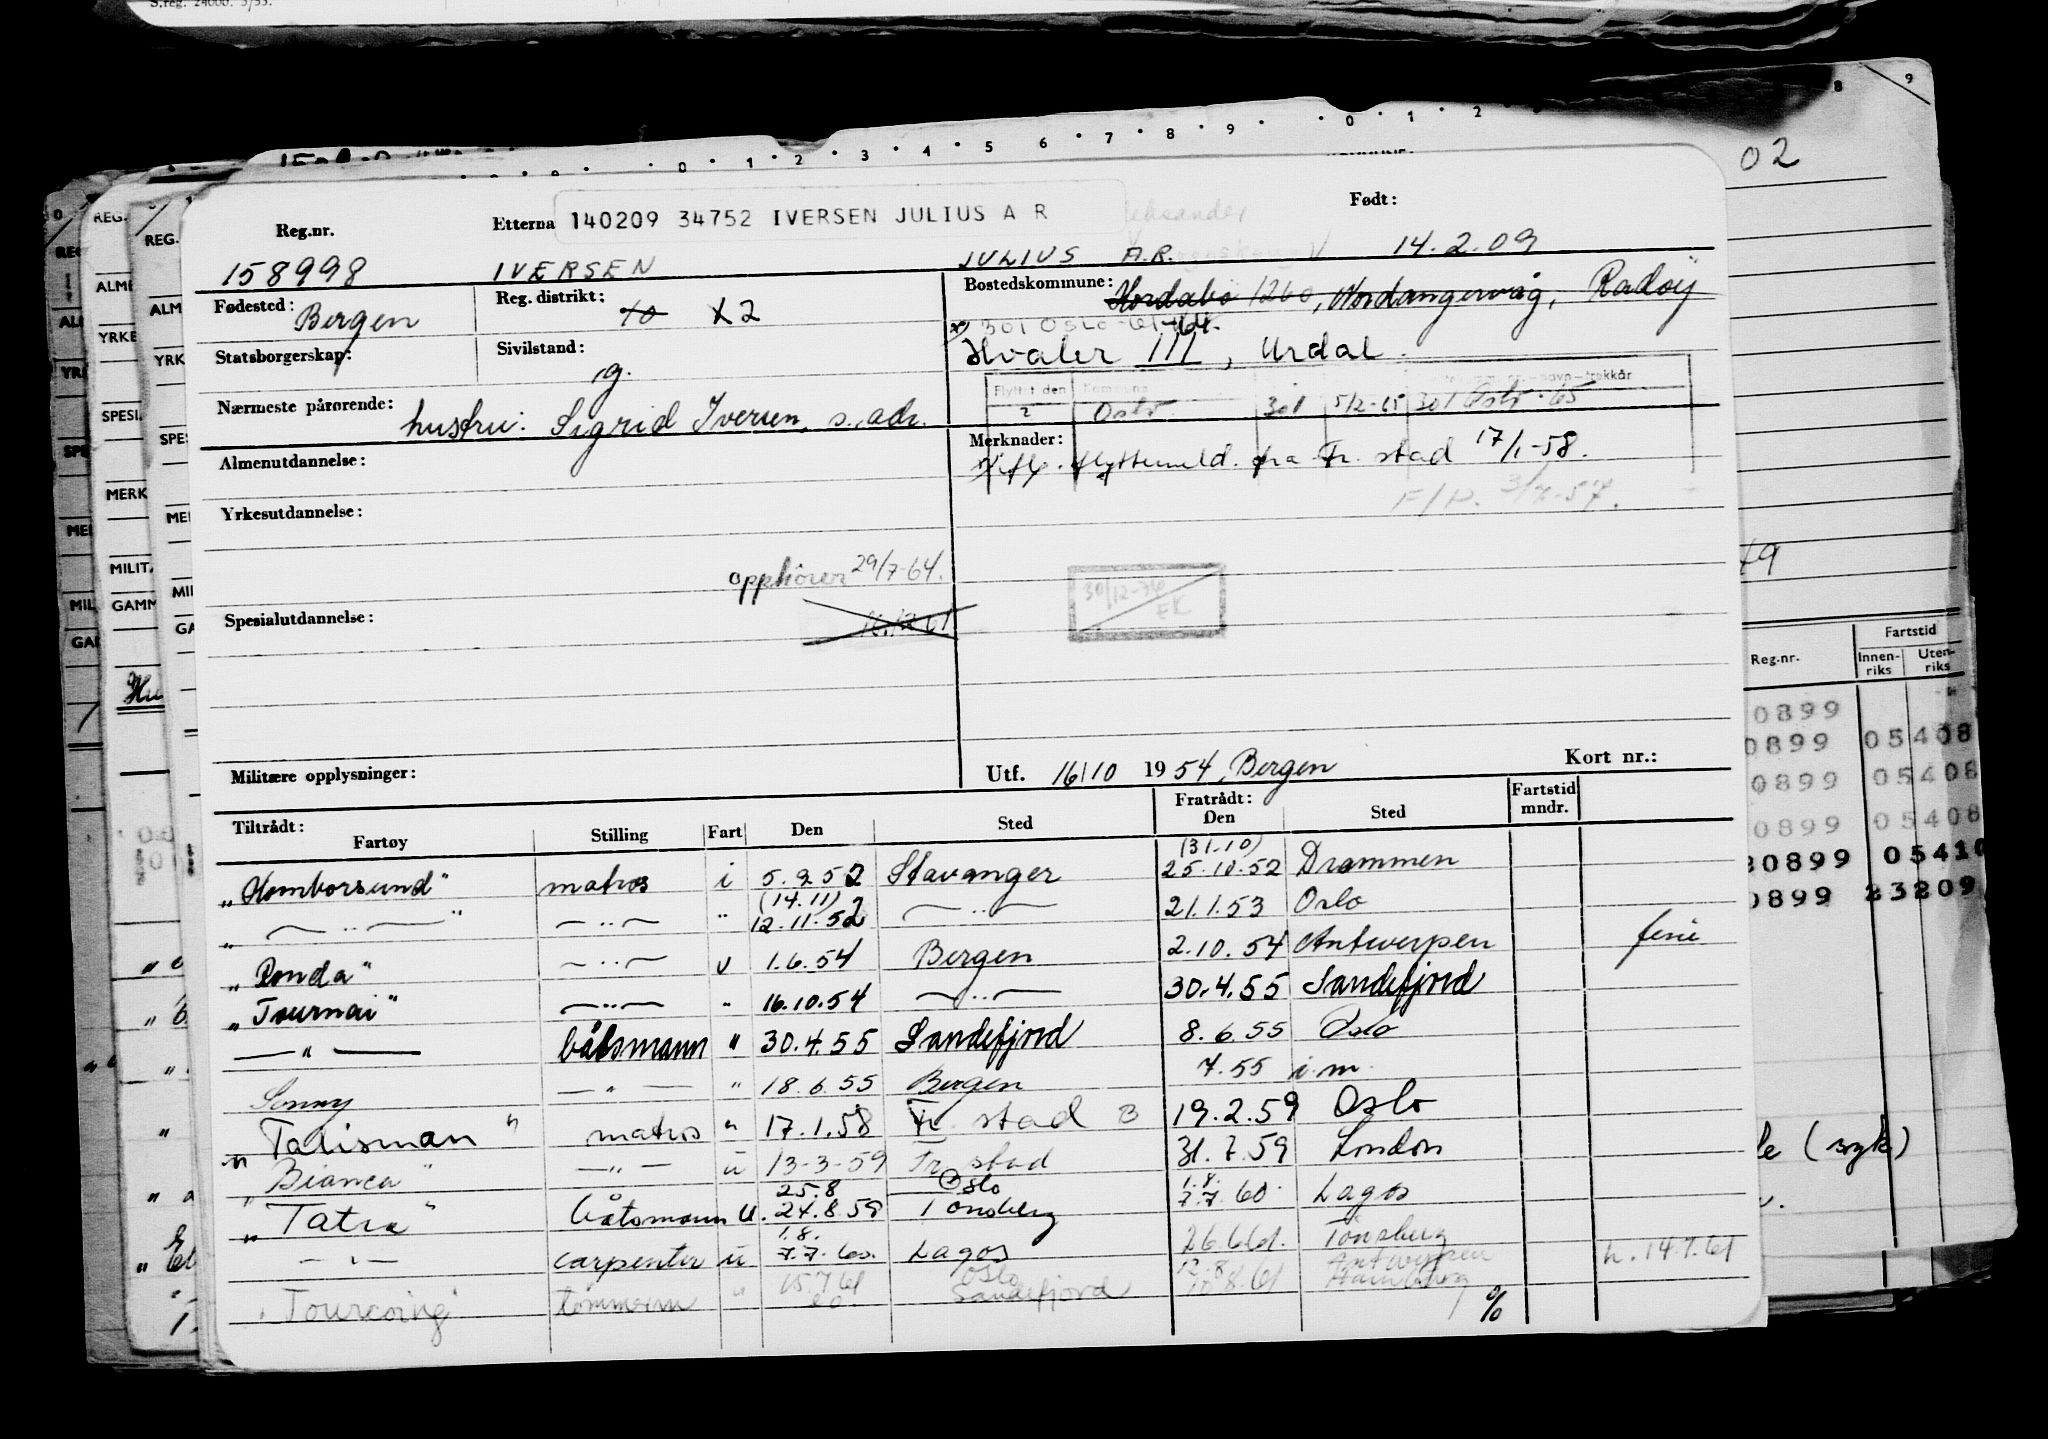 S.reg. 24000. 3/55.
8 9
0 1 2 3 4 5 6 7 8 9 0 1 2
02
Reg.nr. Etterna 140209 34752 IVERSEN JULIUS A R Født:
158998 IVERSEN JULIUS A.R. 14.2.09
Fødested: Bergen Reg. distrikt: 10 X2 Bostedskommune: Hordabø 1260, Nordangervåg, Radøy
301 Oslo -61-64.
Statsborgerskap: Sivilstand: g. Hvaler III, Urdal.
Flyttet den Kommune
2 Oslo 301 5/2-65 301 Oslo - 65
Nærmeste pårørende: hustru: Sigrid Iversen, s. adr.
Merknader: flyttemeld. fra Fr. stad 17/1-58.
Almenutdannelse:
F/P. 3/7-57.
Yrkesutdannelse:
opphører 29/7-64.
30/12-76
EK
Spesialutdannelse:
Militære opplysninger: Utf. 16/10 1954, Bergen Kort nr.:
Tiltrådt: Fratrådt:
Fartøy Stilling Fart Den Sted Den Sted Fartstid mndr.
(31.10)
"Homborsund" matros i 5.9.52 Stavanger 25.10.52 Drammen
(14.11)
" — " — " — " — " 12.11.52 — " — 21.1.53 Oslo
"Ronda" — " — u 1.6.54 Bergen 2.10.54 Antwerpen ferie
"Tournai" — " — " 16.10.54 — " — 30.4.55 Sandefjord
— " — båtsmann " 30.4.55 Sandefjord 8.6.55 Oslo
Sonny — " — " 18.6.55 Bergen 7.55 i.m.
"Talisman" matros " 17.1.58 Fr. stad B 19.2.59 Oslo
"Bianca" — " — u 13-3-59 Fr. stad 31.7.59 London
25.8 Oslo 1.8.
"Tatra" båtsmann u. 24.8.59 Tønsberg 7.7.60 Lagos
1.8.
— " — carpenter u 7.7.60. Lagos 26.6.61. Tønsberg
15.7.61 Oslo 12.8 Antwerpen h. 14.7.61
"Tourcoing" tømmerm " 20. Sandefjord 10.8.61 Hamburg
%
REG. ALM YRK SPES MERK MILIT GAMM
Reg.nr. Fartstid
Innenriks Utenriks
0899
0899 05408
0899 05408
0899 05408
30899 05410
0899 23209
(syk)